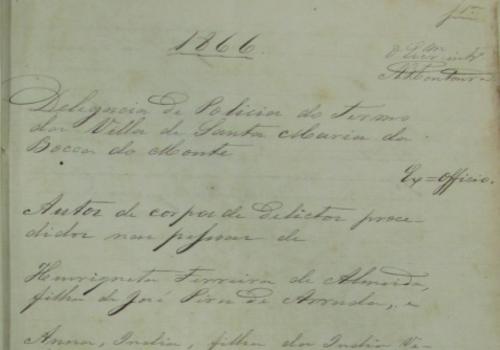 1866
O Escrivão
Delegacia de Policia do Termo
da Villa de Santa Maria da
Bocca do Monte
Ex=officio.
Autos de corpo de delictos proce-
didos nas pessoas de
Henriqueta Ferreira de Almeida,
filha de José Pires de Arruda, e
Anna, India, filha do Indio Vi-